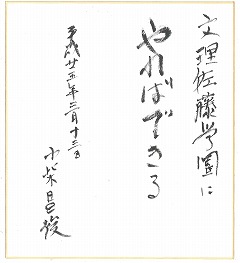 文理佐藤学園に
やればできる
平成廿五年三月十三日
小柴昌俊